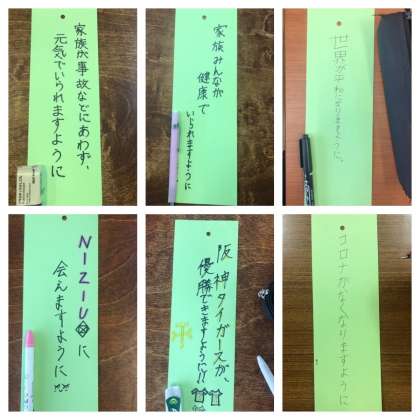 家族が事故などにあわず、
元気でいられますように
家族みんなが
健康で
いられますように
世界が平和になりますように。
NIZIUに
会えますように
阪神タイガースが、
優勝できますように!!
コロナがなくなりますように